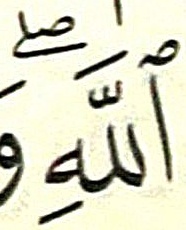 ٱللَّهِ ۖ وَ